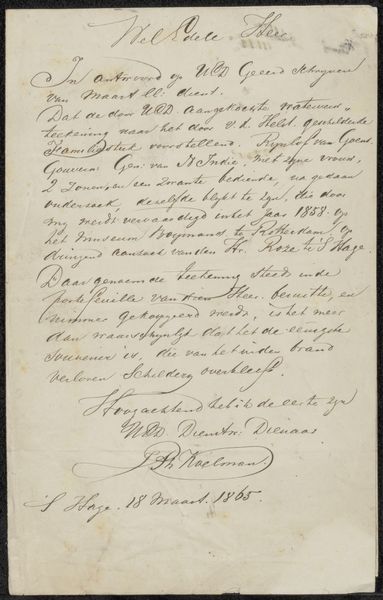 Wel Edele Heer
In antwoord op UED Geëerd schryven
van Maart ll. dient.
Dat de door UED. aangekochte waterverw
teekening naar het door v. d. Helst geschilderde
Familiestuk voorstellend. Ryklof van Goens
Gouvern: Gen: van N. Indie, met zyne vrouw,
2 Zonen, en een zwarte bediende, na gedaan
onderzoek, dezelfde blykt te zyn, die door
my werdt vervaardigd in het Jaar 1858 op
het Museum Boymans te Rotterdam op
dringend aanzoek van den Hr. Roze te 'S Hage
Daar genoemde teekening steeds in de
portefeuille van dien Heer berustte, en
nimmer gekopyeerd werdt, is het meer
dan waarschynlyk dat het de eenigste
souvenier is, die van het in den brand
verloren Schildery overbleef.
Hoogachtend heb ik de eer te zyn
UED. Dienstw. Dienaar
J. Ph Koelman.
'S Hage. 18 Maart. 1865.